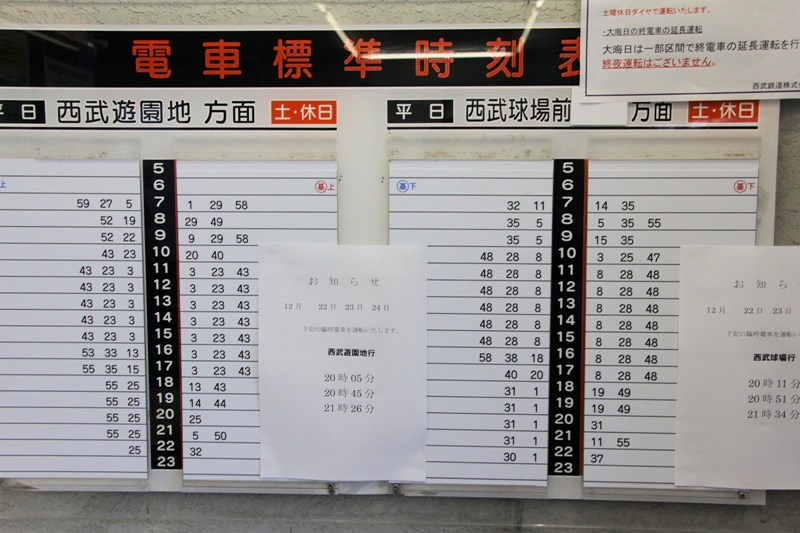 土曜休日ダイヤで運転いたします。
・大晦日の終電車の延長運転
大晦日は一部区間で終電車の延長運転を行
終夜運転はございません。
西武鉄道株式
電車標準時刻表
平日 西武遊園地 方面 土・休日
上 5
6 墓上
59 27 5 7 1 29 58
52 19 8 29 49
52 22 9 9 29 58
43 23 10 20 40
43 23 3 11 3 23 43
43 23 3 12 3 23 43
43 23 3 13 3 23 43
43 23 3 14 3 23 43
43 23 3 15 3 23 43
53 33 13 16 3 23 43
55 35 15 17 3 23 43
55 25 18 13 43
55 25 19 14 44
55 25 20 25
55 25 21 5 50
25 22 32
23
お知らせ
12月 22日 23日 24日
下記の臨時電車を運転いたします。
西武遊園地行
20時05分
20時45分
21時26分
平日 西武球場前 方面 土・休日
5
墓下 6 墓下
32 11 7 14 35
35 5 8 5 35 55
35 5 9 15 35
48 28 8 10 3 25 47
48 28 8 11 8 28 48
48 28 8 12 8 28 48
48 28 8 13 8 28 48
48 28 8 14 8 28 48
48 28 8 15 8 28 48
58 38 18 16 8 28 48
40 20 17 8 28 48
31 1 18 19 49
31 1 19 19 49
31 1 20 31
31 1 21 11 55
30 1 22 37
23
お知ら
12月 22日 23日
下記の臨時電車を運転いた
西武球場行
20時11分
20時51分
21時34分